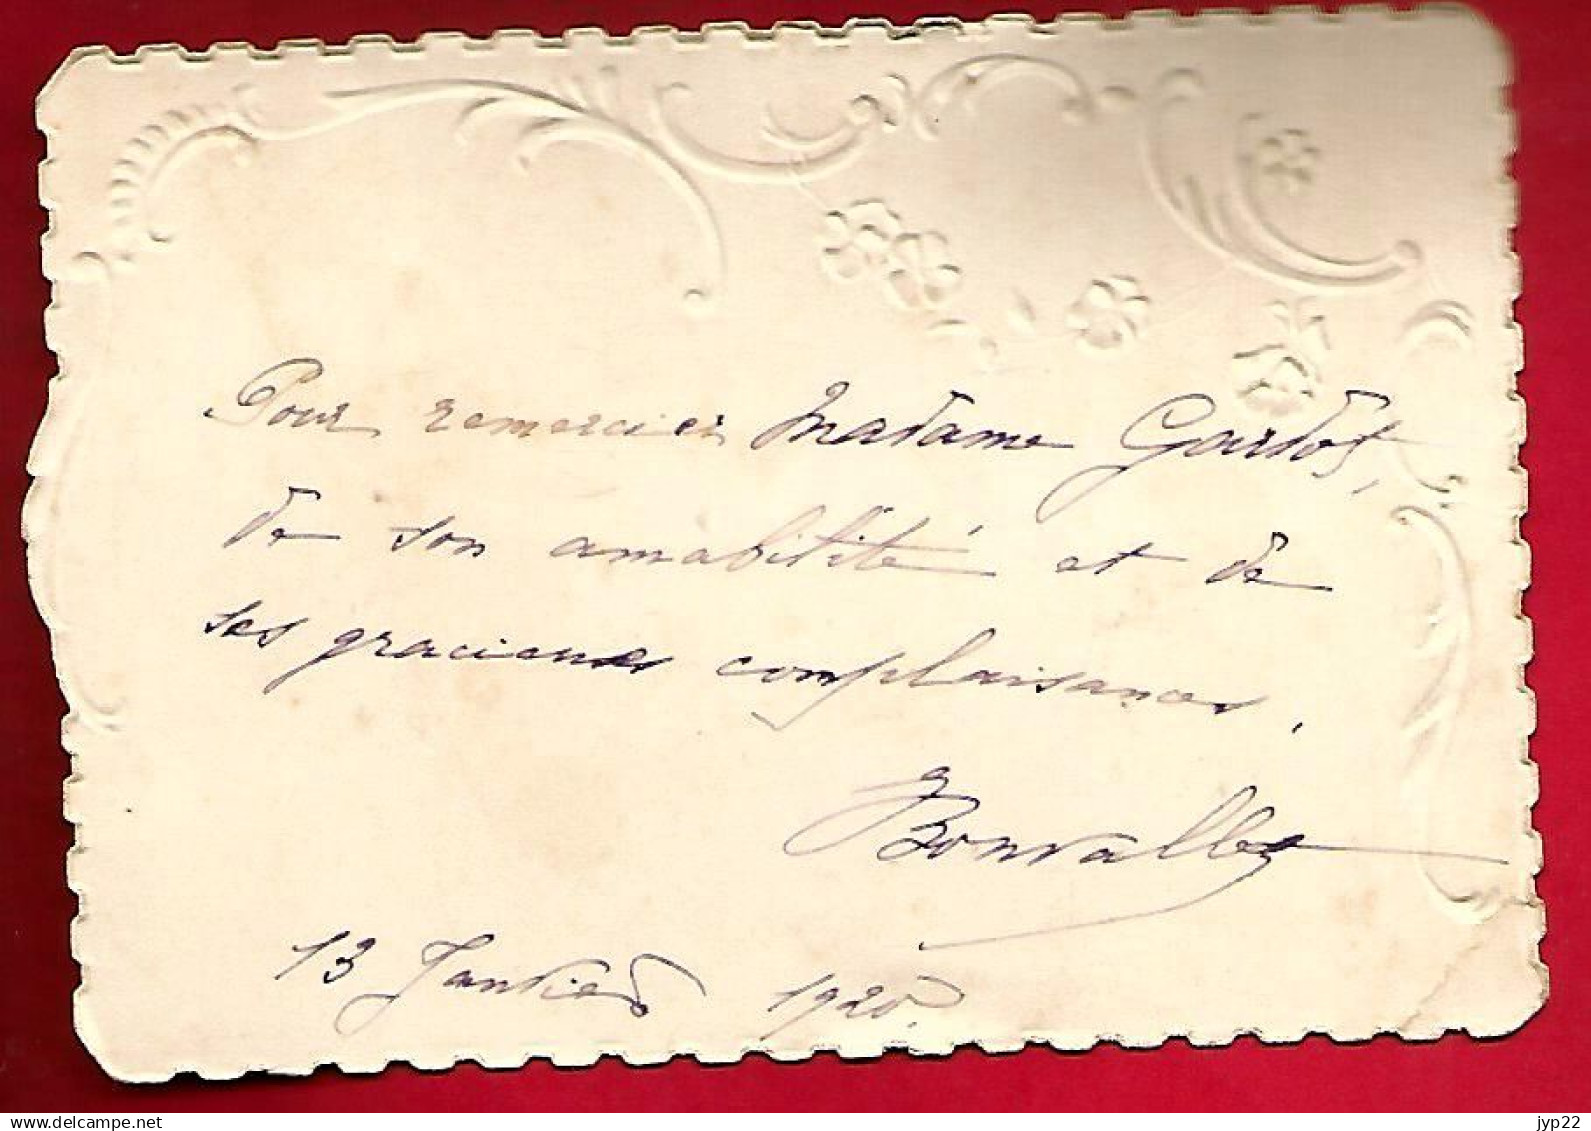 Pour remercier Madame Gardot,
de son amabilité et de
ses gracieuses complaisances.
Bonvallet
13 Janvier 1920.
www.delcampe.net
jyp22